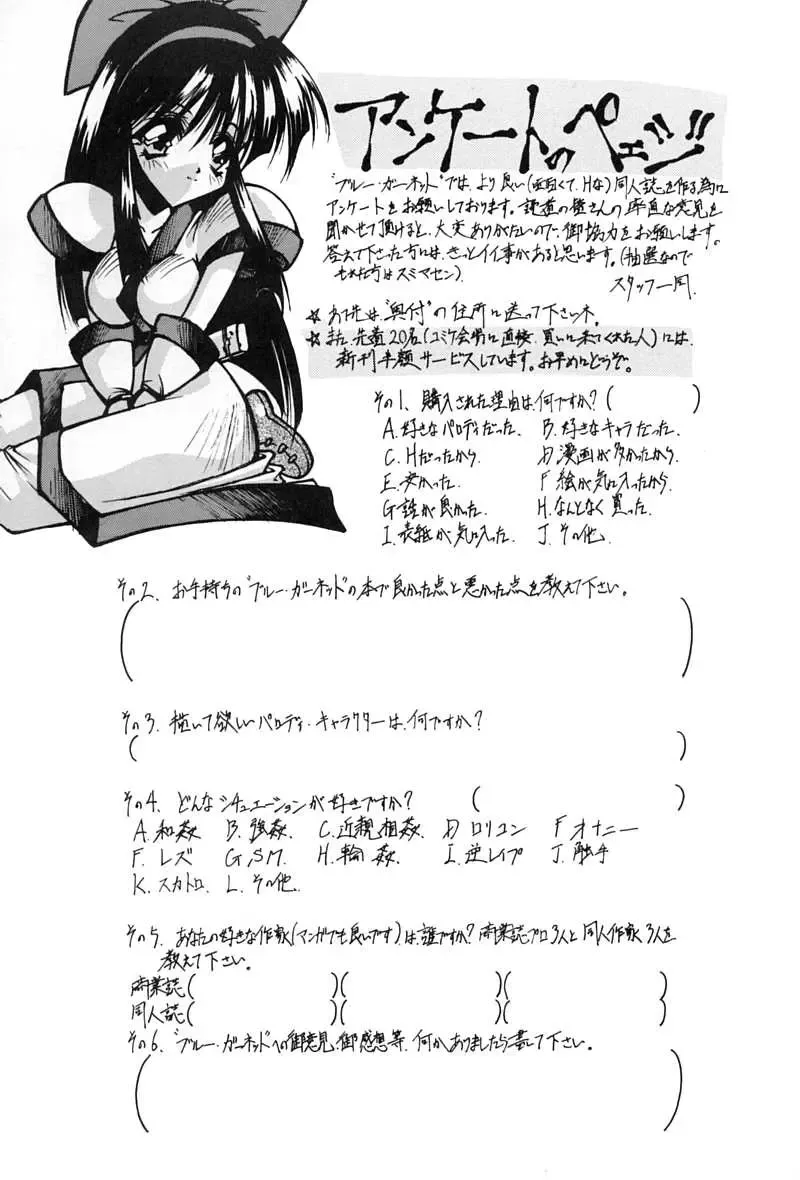 アンケートのページ!!
"ブルー・ガーネット"では、より良い(面白くて、Hな)同人誌を作る為に
アンケートをお願いしております。読者の皆さんの率直な意見を
聞かせて頂けると、大変ありがたいので、御協力をお願いします。
答えて下さった方には、きっとイイ事があると思います。(抽選なので
もれた方はスミマセン)
スタッフ一同.
☆あて先は"奥付"の住所に送って下さい。
☆また、先着20名(コミケ会場に直接、買いに来てくれた人)には、
新刊半額サービスしています。お早めにどうぞ。
その1、購入された理由は、何ですか?( )
A.好きなパロディだった. B.好きなキャラだった.
C.Hだったから. D.漫画が多かったから.
E.安かった. F.絵が気に入ったから.
G.話が良かった. H.なんとなく買った.
I.表紙が気に入った. J.その他.
その2、お手持ちの"ブルー・ガーネット"の本で良かった点と悪かった点を教えて下さい。
( )
その3、描いて欲しいパロディ・キャラクターは、何ですか?
( )
その4、どんなシチュエーションが好きですか? ( )
A.和姦 B.強姦. C.近親相姦. D.ロリコン F オナニー
F.レズ G,SM. H.輪姦. I.逆レイプ J.触手
K.スカトロ. L.その他.
その5、あなたの好きな作家(マンガでも良いです)は、誰ですか?商業誌プロ3人と同人作家3人を
教えて下さい。
商業誌( )( )( )
同人誌( )( )( )
その6、"ブルー・ガーネット"への御意見、御感想等、何かありましたら書いて下さい。
( )